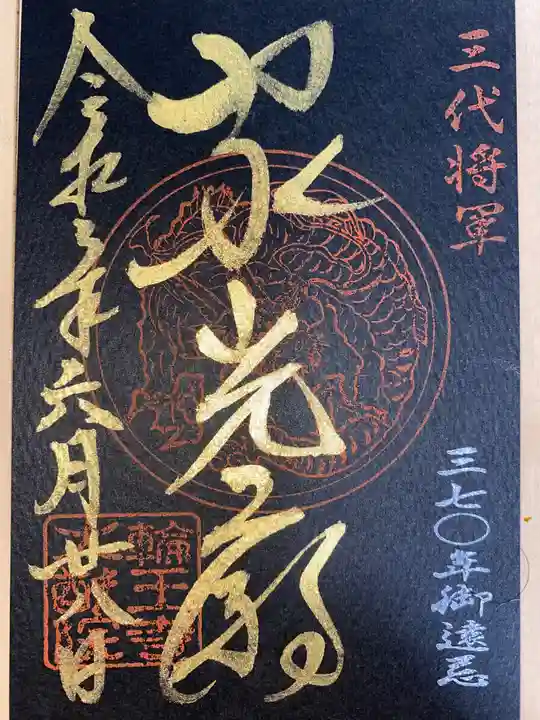 三代将軍
三七〇年御遠忌
家光廟
令和2年六月廿八日
輪王寺